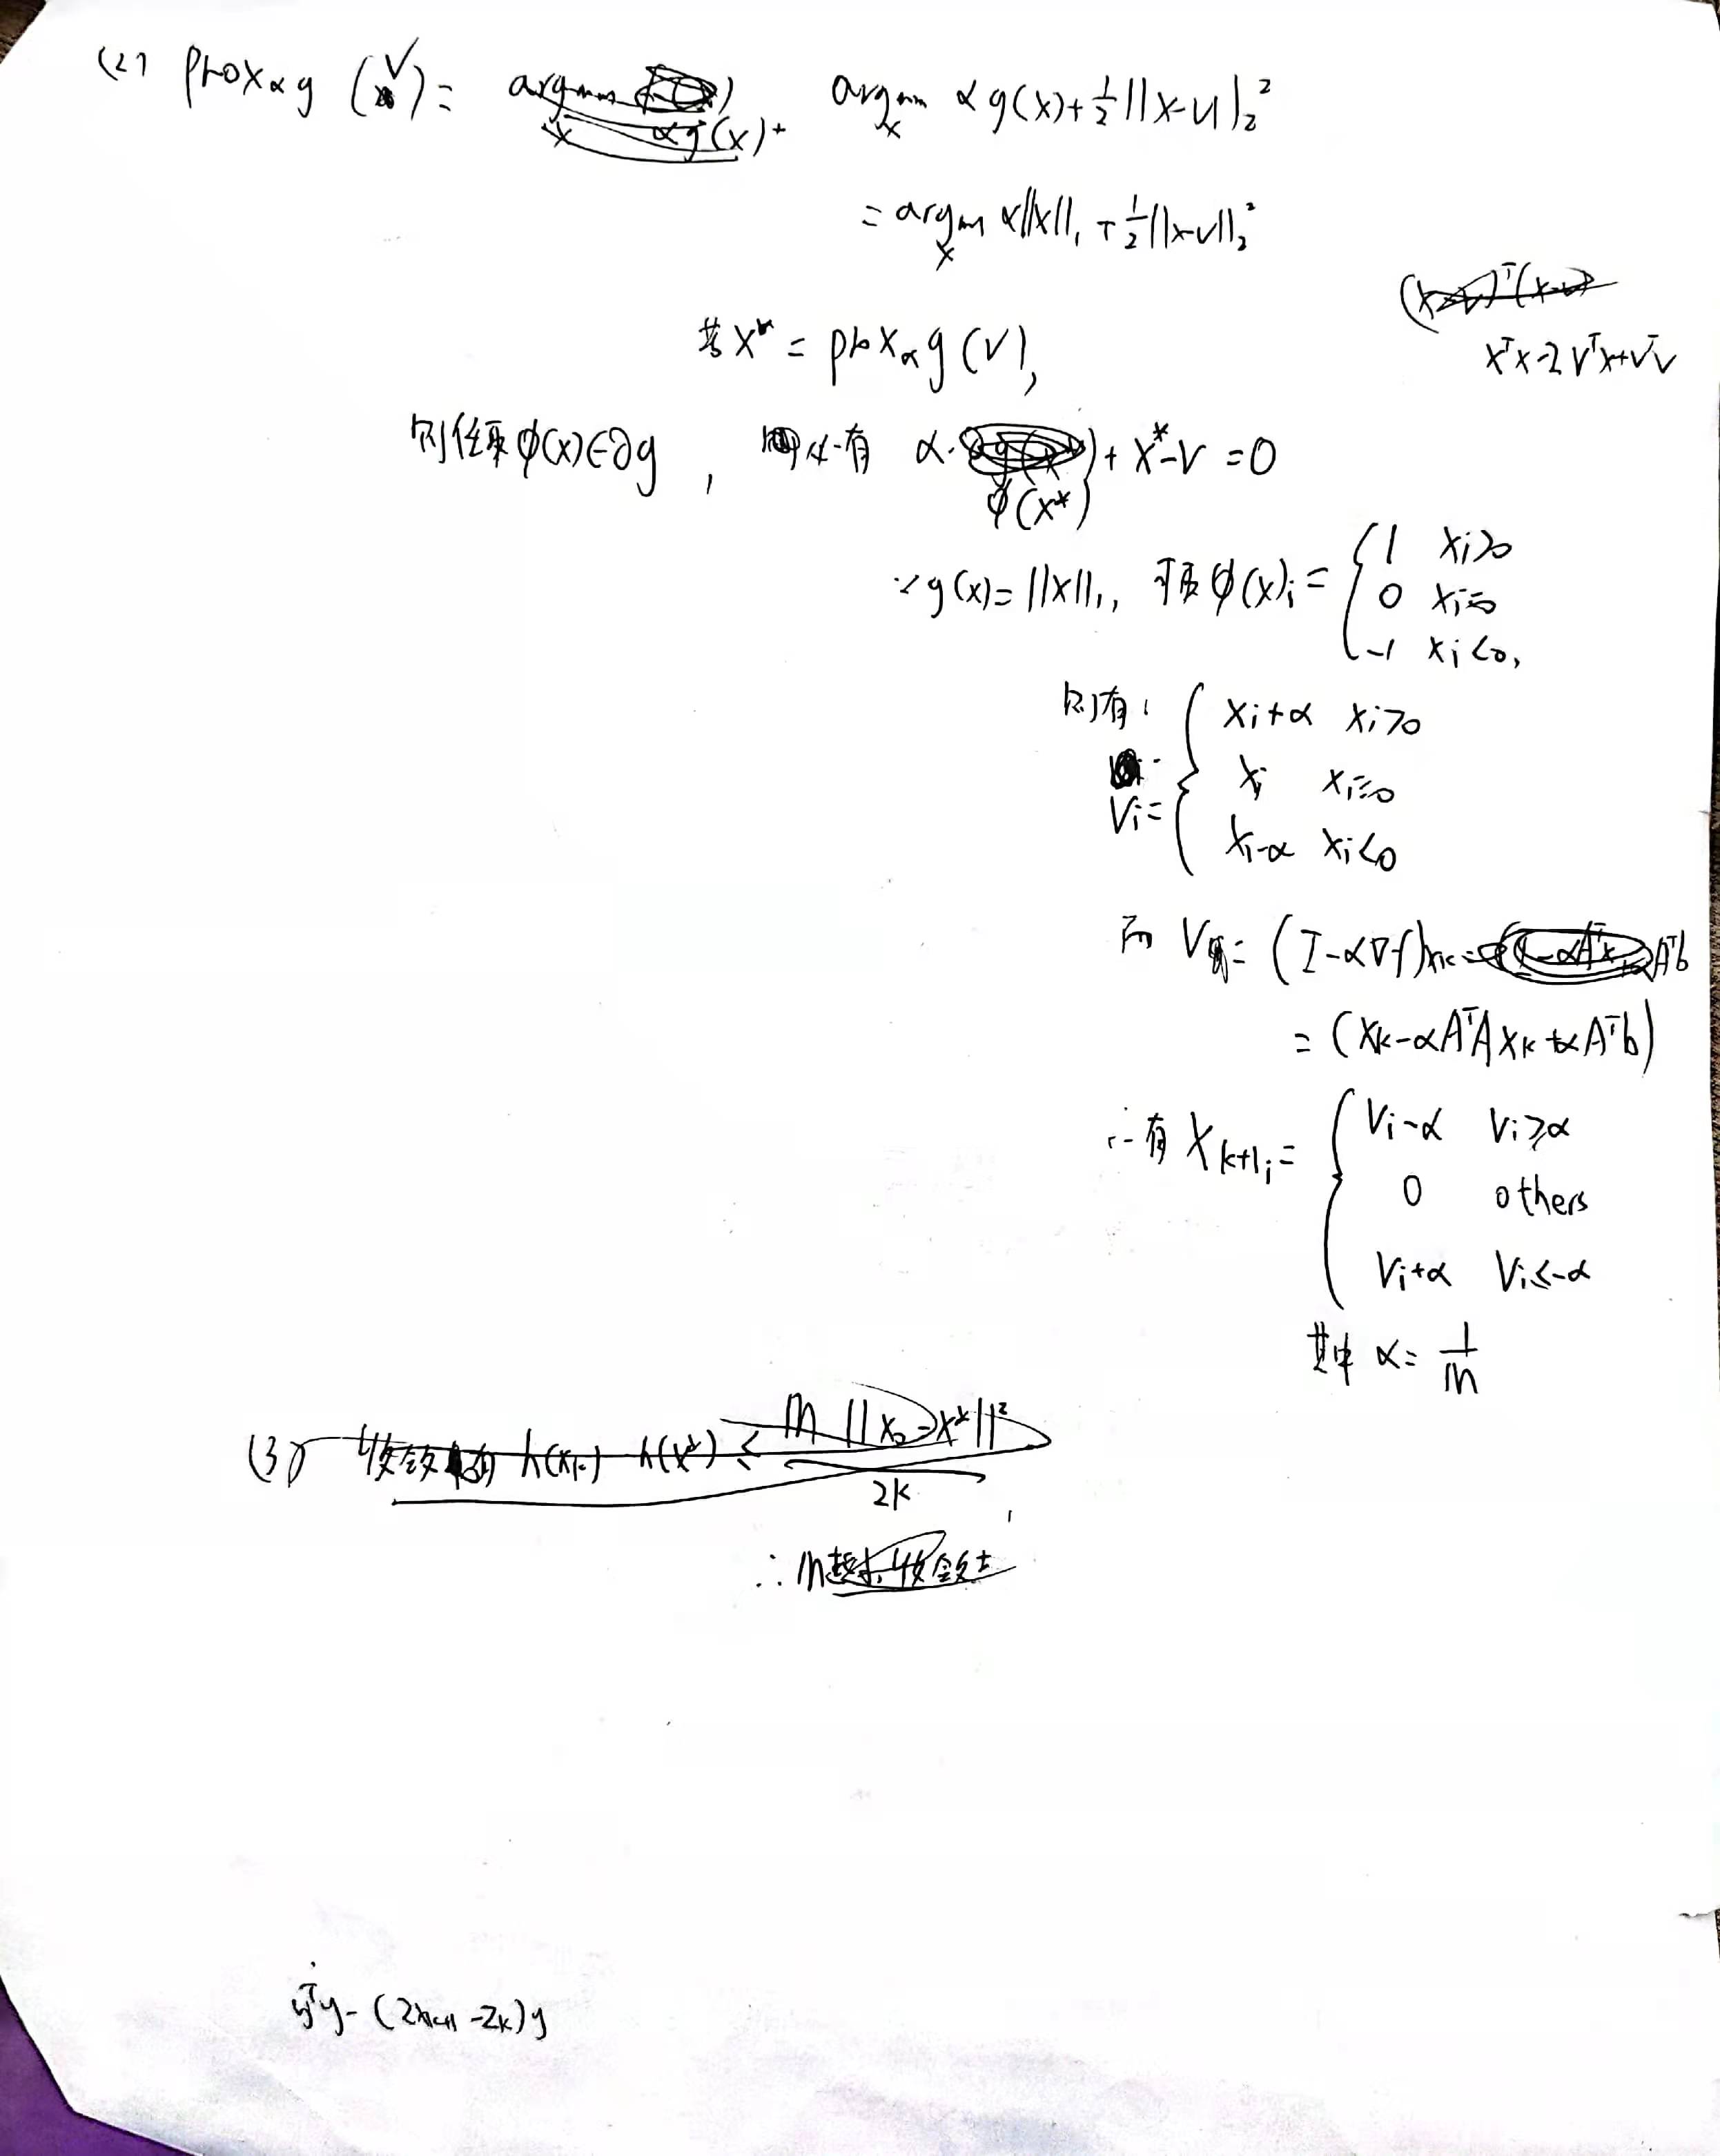 (2) prox αg (v) = argmin x αg(x)+ argmin x αg(x)+½||x-v||₂²
= argmin x α||x||₁ + ½||x-v||₂²
xᵀx-2vᵀx+vᵀv
若 x* = proxαg(v),
则任取 φ(x)∈∂g , 必有 α·φ(x*) + x*-v = 0
∵ g(x)=||x||₁, 可取 φ(x)ᵢ = { 1 xᵢ>0
0 xᵢ=0
-1 xᵢ<0,
则有: vᵢ= { xᵢ+α xᵢ>0
xᵢ xᵢ=0
xᵢ-α xᵢ<0
而 V = (I-α∇f)xₖ =
= (xₖ-αAᵀAxₖ+αAᵀb)
∴有 xₖ₊₁ᵢ = { vᵢ-α vᵢ≥α
0 others
vᵢ+α vᵢ≤-α
其中 α= 1/m
(3) 收敛 h(xₖ)-h(x*) ≤ m||x₀-x*||²/2k
∴ m越 收敛
yᵀy-(2xₖ₊₁-zₖ)y